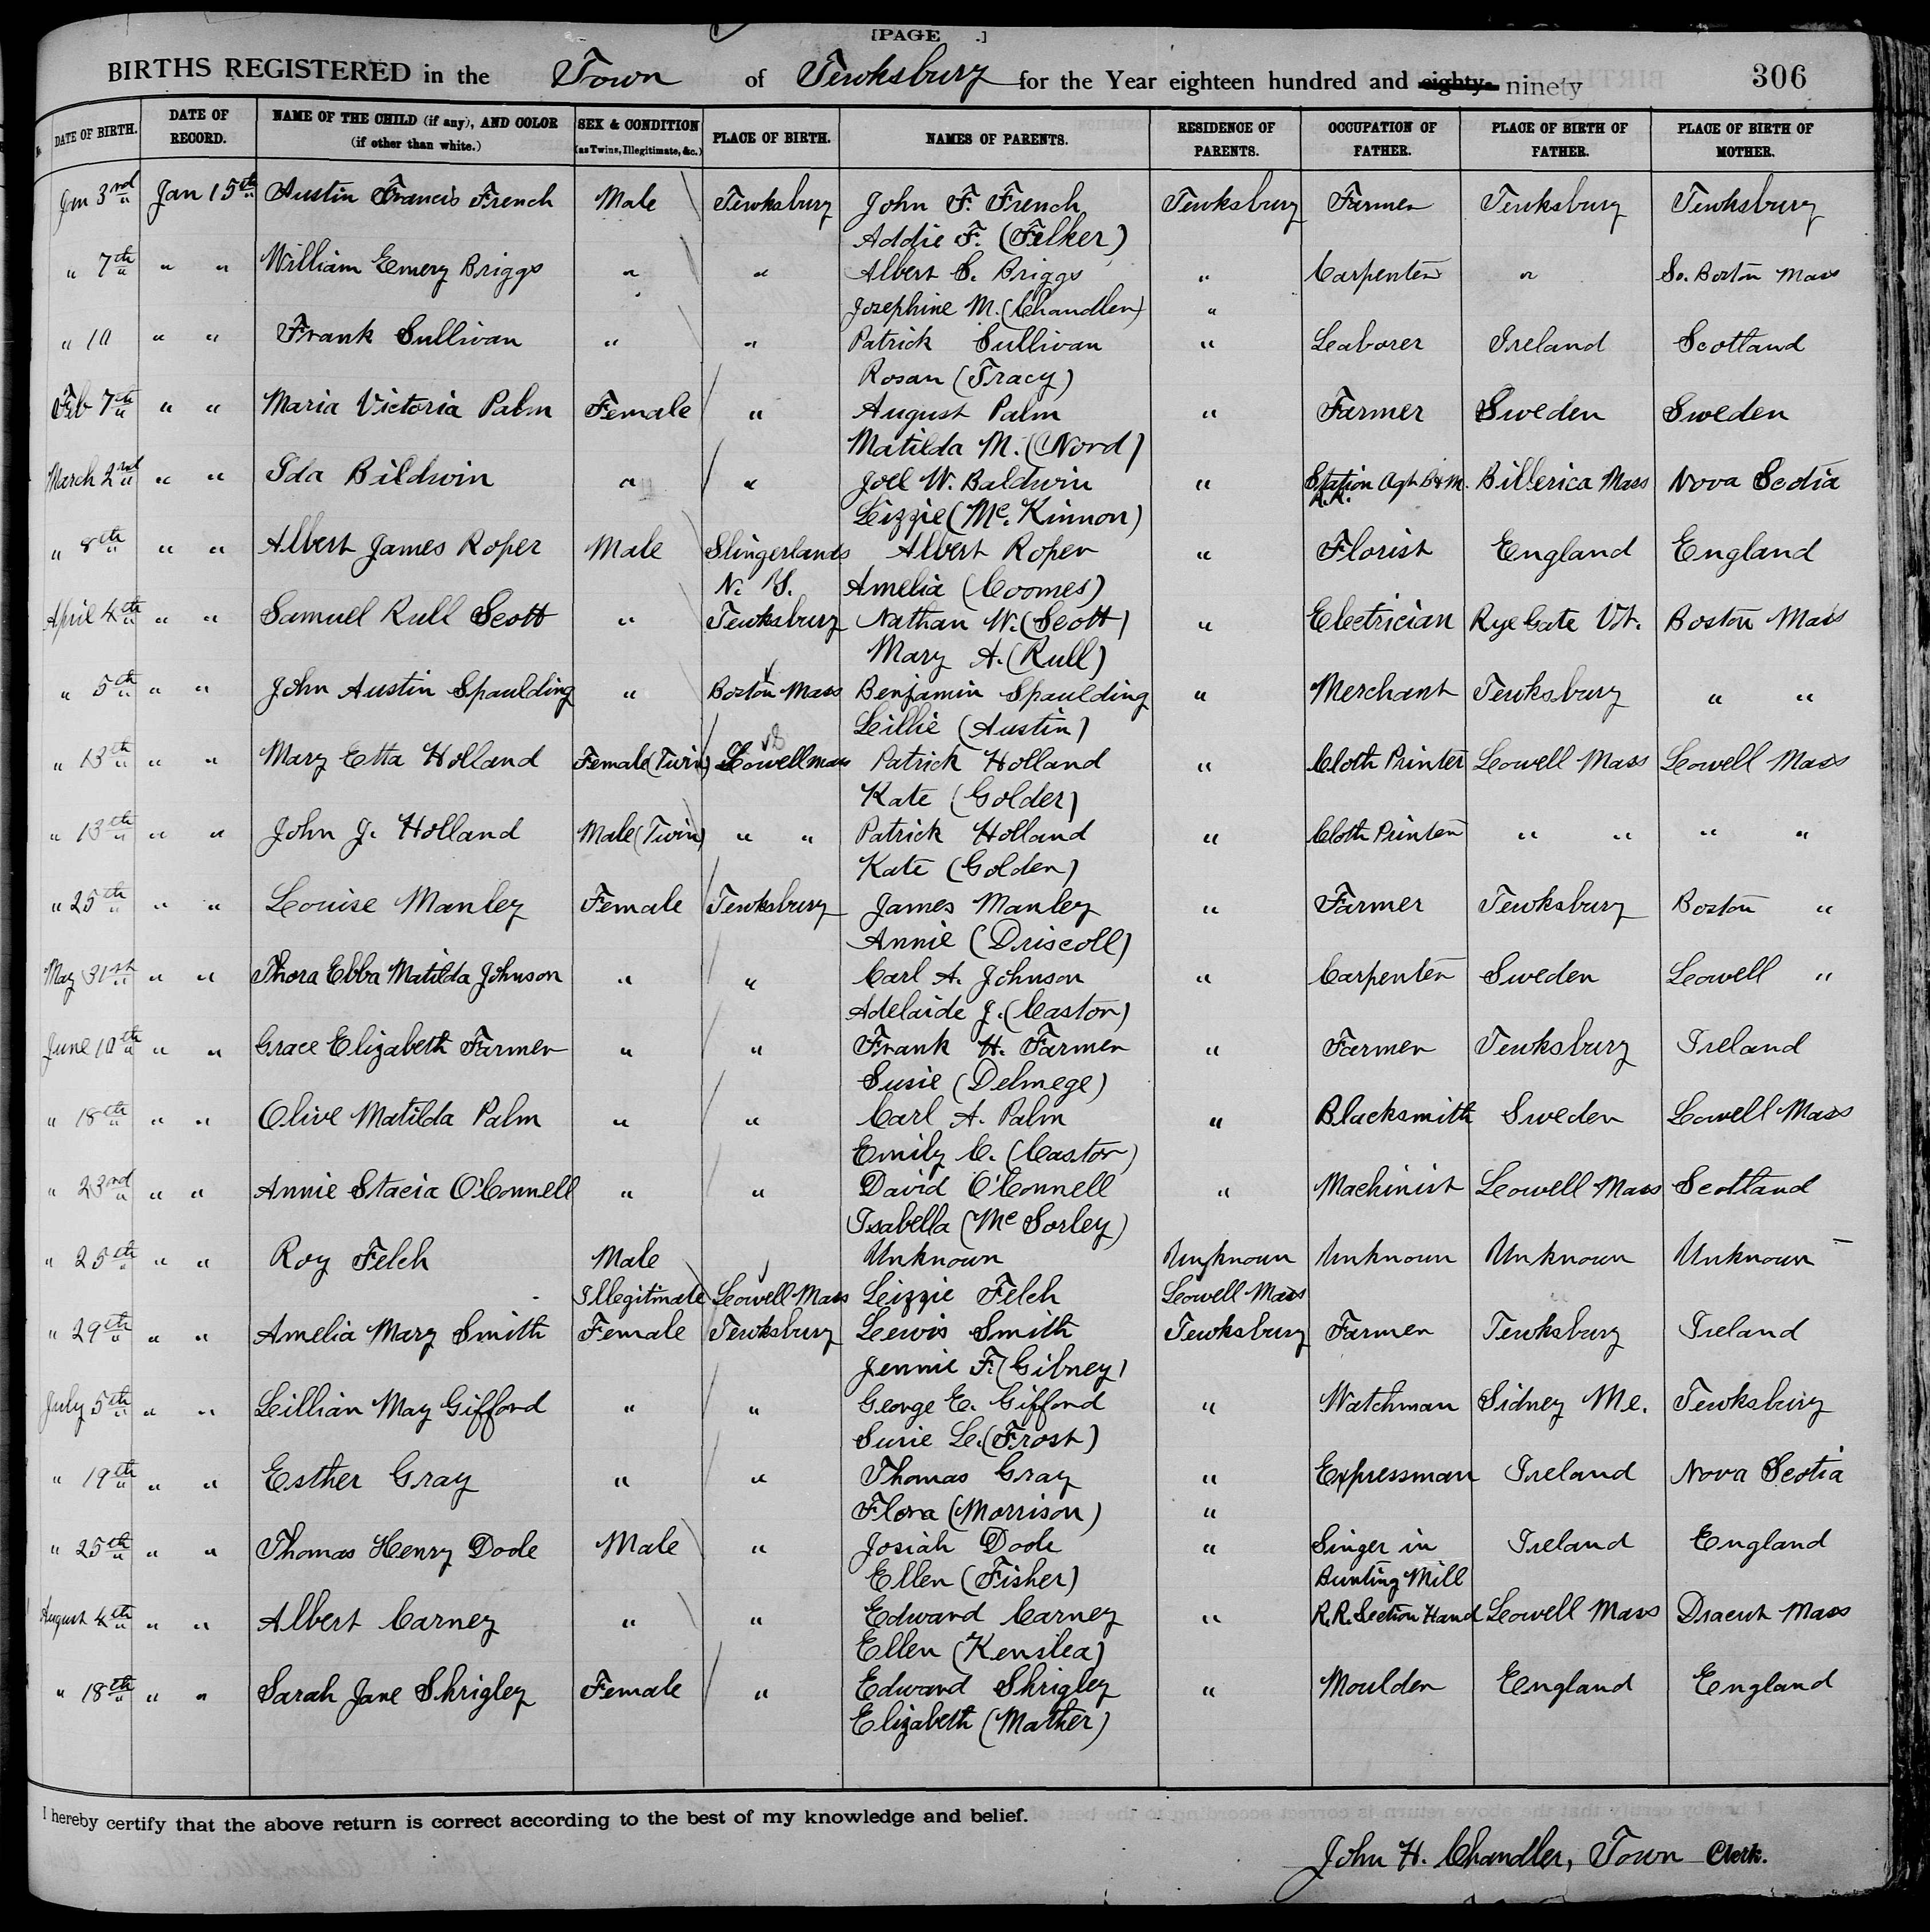 [PAGE .]
BIRTHS REGISTERED in the Town of Tewksbury for the Year eighteen hundred and eighty- ninety 306
DATE OF BIRTH. DATE OF RECORD. NAME OF THE CHILD (if any), AND COLOR (if other than white.) SEX & CONDITION (as Twins, Illegitimate, &c.) PLACE OF BIRTH. NAMES OF PARENTS. RESIDENCE OF PARENTS. OCCUPATION OF FATHER. PLACE OF BIRTH OF FATHER. PLACE OF BIRTH OF MOTHER.
Jan 3rd Jan 15th Austin Francis French Male Tewksbury John F. French Tewksbury Farmer Tewksbury Tewksbury
Addie F. (Felker)
" 7th " " William Emery Briggs " " Albert S. Briggs " Carpenter " So. Boston Mass
Josephine M. (Chandler) "
" 10 " " Frank Sullivan " " Patrick Sullivan " Laborer Ireland Scotland
Rosan (Tracy)
Feb 7th " " Maria Victoria Palm Female " August Palm " Farmer Sweden Sweden
Matilda M. (Nord)
March 2nd " " Ida Bildwin " " Joel W. Baldwin " Station Agt B & M. Billerica Mass Nova Scotia
R.R.
Lizzie (Mc. Kinnon)
" 8th " " Albert James Roper Male Slingerlands Albert Roper " Florist England England
N. Y. Amelia (Coomes)
April 4th " " Samuel Rull Scott " Tewksbury Nathan W. (Scott) " Electrician Rye Gate Vt. Boston Mass
Mary A. (Rull)
" 5th " " John Austin Spaulding " Boston Mass Benjamin Spaulding " Merchant Tewksbury " "
Lillie (Austin)
" 13th " " Mary Etta Holland Female (Twin) Lowell Mass Patrick Holland " Cloth Printer Lowell Mass Lowell Mass
Kate (Golder)
" 13th " " John J. Holland Male (Twin) " " Patrick Holland " Cloth Printer " " " "
Kate (Golden)
" 25th " " Louise Manley Female Tewksbury James Manley " Farmer Tewksbury Boston "
Annie (Driscoll)
May 31st " " Thora Ebba Matilda Johnson " " Carl A. Johnson " Carpenter Sweden Lowell "
Adelaide J. (Caston)
June 10th " " Grace Elizabeth Farmer " " Frank H. Farmer " Farmer Tewksbury Ireland
Susie (Delmege)
" 18th " " Olive Matilda Palm " " Carl A. Palm " Blacksmith Sweden Lowell Mass
Emily C. (Castor)
" 23rd " " Annie Stacia O'Connell " " David O'Connell " Machinist Lowell Mass Scotland
Isabella (Mc Sorley)
" 25th " " Roy Felch Male Unknown Unknown Unknown Unknown Unknown
Illegitimate Lowell Mass Lizzie Felch Lowell Mass
" 29th " " Amelia Mary Smith Female Tewksbury Lewis Smith Tewksbury Farmer Tewksbury Ireland
Jennie F. (Gibney)
July 5th " " Lillian May Gifford " " George E. Gifford " Watchman Sidney Me. Tewksbury
Susie L. (Frost)
" 19th " " Esther Gray " " Thomas Gray " Expressman Ireland Nova Scotia
Flora (Morrison) "
" 25th " " Thomas Henry Dode Male " Josiah Dode " Singer in Ireland England
Ellen (Fisher) Bunting Mill
August 4th " " Albert Carney " " Edward Carney " R.R. Section Hand Lowell Mass Dracut Mass
Ellen (Kenslea)
" 18th " " Sarah Jane Shrigley Female " Edward Shrigley " Moulder England England
Elizabeth (Mather)
I hereby certify that the above return is correct according to the best of my knowledge and belief.
John H. Chandler, Town Clerk.